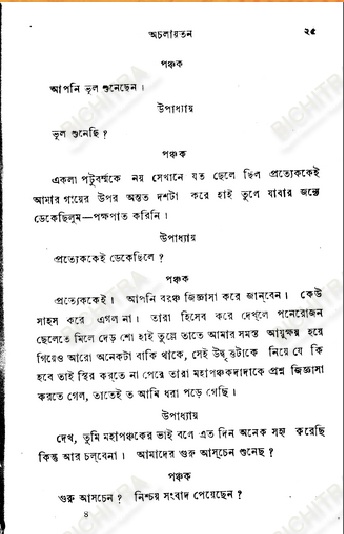 অচলায়তন ২৫
পঞ্চক
আপনি ভুল শুনেছেন।
উপাধ্যায়
ভুল শুনেছি?
পঞ্চক
একলা পটুবর্ম্মকে নয় সেখানে যত ছেলে ছিল প্রত্যেককেই
আমার গায়ের উপর অন্তত দশটা করে হাই তুলে যাবার জন্যে
ডেকেছিলুম—পক্ষপাত করিনি।
উপাধ্যায়
প্রত্যেককেই ডেকেছিলে?
পঞ্চক
প্রত্যেককেই॥ আপনি বরঞ্চ জিজ্ঞাসা করে জানবেন। কেউ
সাহস করে এগল না। তারা হিসেব করে দেখ্‌লে পনেরোজন
ছেলেতে মিলে দেড় শো হাই তুল্লে তাতে আমার সমস্ত আয়ুক্ষয় হয়ে
গিয়েও আরো অনেকটা বাকি থাকে, সেই উদ্বৃত্তটাকে নিয়ে যে কি
হবে তাই স্থির করতে না পেরে তারা মহাপঞ্চকদাদাকে প্রশ্ন জিজ্ঞাসা
করতে গেল, তাতেই ত আমি ধরা পড়ে গেছি॥
উপাধ্যায়
দেখ, তুমি মহাপঞ্চকের ভাই বলে এত দিন অনেক সহ্য করেছি
কিন্তু আর চল্‌বেনা। আমাদের গুরু আস্‌চেন শুনেছ?
পঞ্চক
গুরু আসচেন? নিশ্চয় সংবাদ পেয়েছেন?
৪
BICHITRA